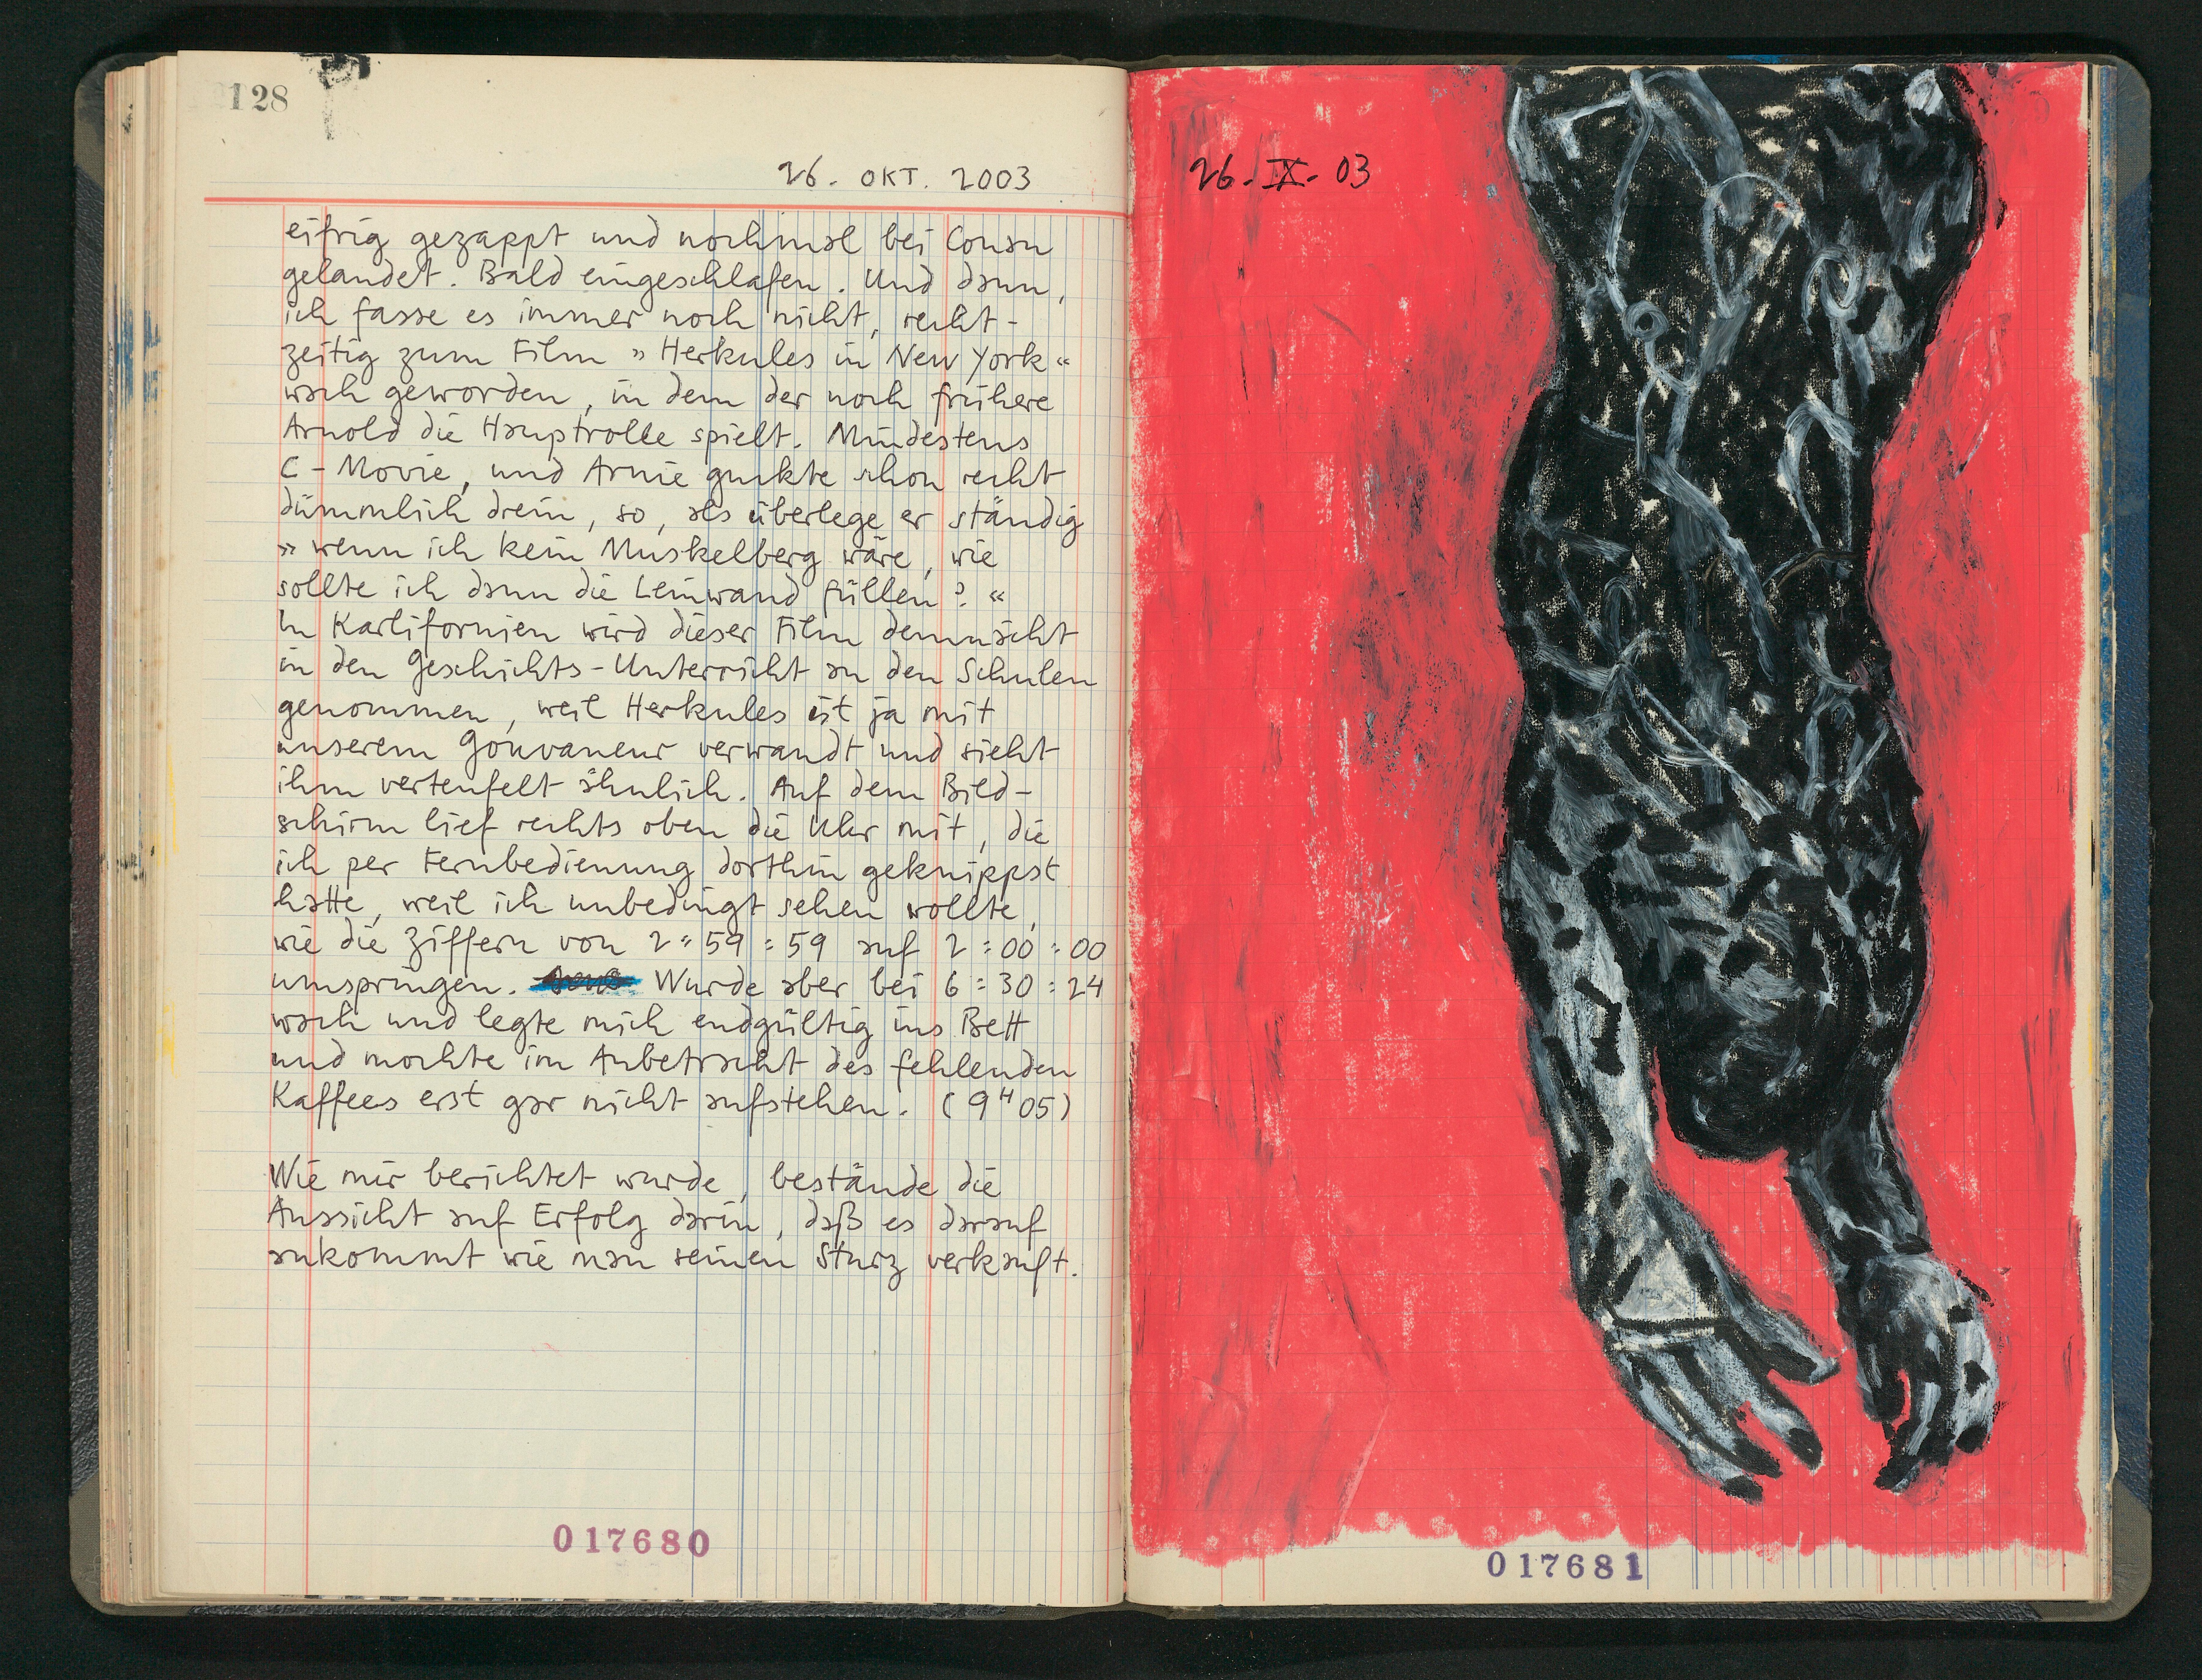 128
26. OKT. 2003
eifrig gezappt und nochmal bei Conan
gelandet. Bald eingeschlafen. Und dann,
ich fasse es immer noch nicht, recht-
zeitig zum Film »Herkules in New York«
wach geworden, in dem der noch frühere
Arnold die Hauptrolle spielt. Mindestens
C-Movie, und Arnie guckte schon recht
dümmlich drein, so, als überlege er ständig
»wenn ich kein Muskelberg wäre, wie
sollte ich dann die Leinwand füllen?«
In Karlifornien wird dieser Film demnächt
in den Geschichts-Unterricht an den Schulen
genommen, weil Herkules ist ja mit
unserem Gouvaneur verwandt und sieht
ihm verteufelt ähnlich. Auf dem Bild-
schirm lief rechts oben die Uhr mit, die
ich per Fernbedienung dorthin geknippst
hatte, weil ich unbedingt sehen wollte,
wie die Ziffern von 2:59:59 auf 2:00:00
umspringen. Wurde aber bei 6:30:24
wach und legte mich endgültig ins Bett
und mochte im Anbetracht des fehlenden
Kaffees erst gar nicht aufstehen. (9H05)
Wie mir berichtet wurde, bestände die
Aussicht auf Erfolg darin, daß es darauf
ankommt wie man seinen Sturz verkauft.
017680
26.IX.03
017681